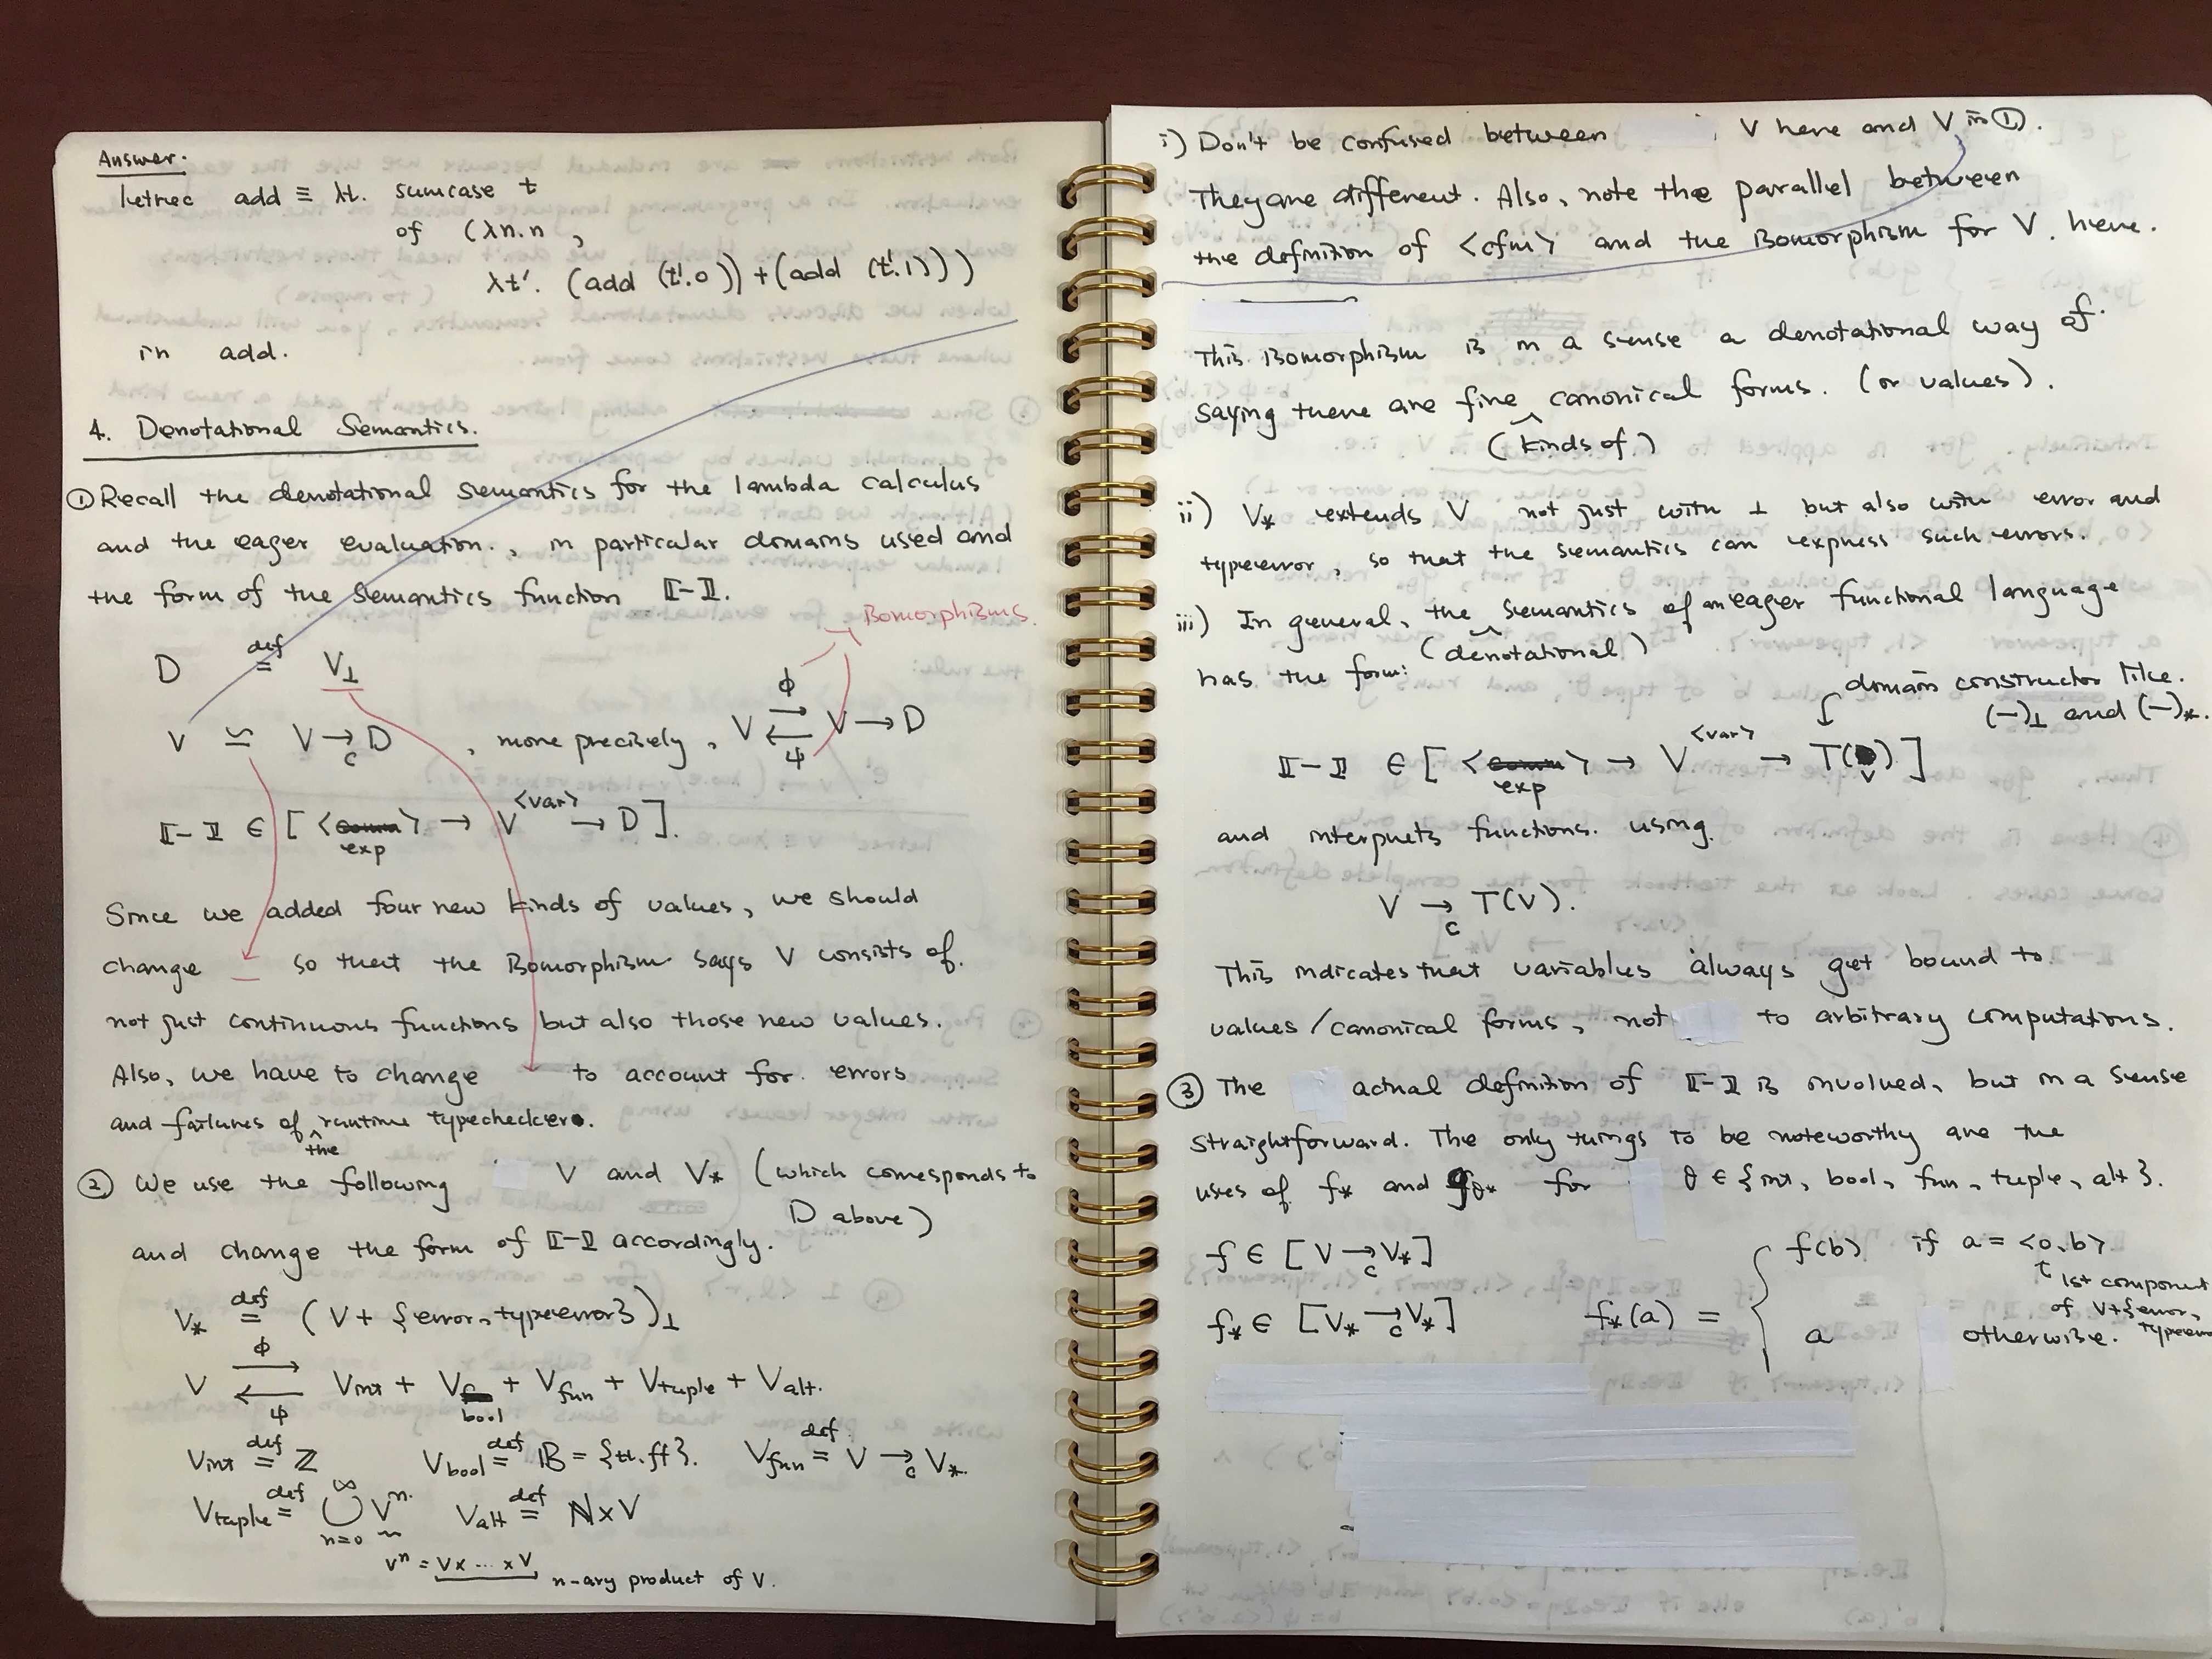 Answer.
letrec add ≡ λt. sumcase t
of (λn.n ,
λt'. (add (t'.0)) + (add (t'.1)))
in add.
4. Denotational Semantics.
① Recall the denotational semantics for the lambda calculus
and the eager evaluation., in particular domains used and
the form of the semantics function ⟦-⟧.
Isomorphisms.
D def= V⊥
V ≃ V →c D , more precisely, V ⇄ V → D
ϕ
ψ
⟦-⟧ ∈ [ <exp> → V^<var> → D ].
Since we added four new kinds of values, we should
change so that the isomorphism says V consists of
not just continuous functions but also those new values.
Also, we have to change to account for errors
and failures of the runtime typechecker.
② We use the following V and V* (which corresponds to
D above)
and change the form of ⟦-⟧ accordingly.
V* def= (V + {error, typeerror})⊥
V ⇄ Vint + Vbool + Vfun + Vtuple + Valt.
ϕ
ψ
Vint def= ℤ Vbool def= 𝔹 = {tt, ff}. Vfun def= V →c V*.
Vtuple def= ⋃_{n=0}^∞ V^n Valt def= ℕ × V
V^n = V × ... × V n-ary product of V.
i) Don't be confused between V here and V in ①.
They are different. Also, note the parallel between
the definition of <cfm> and the isomorphism for V here.
This isomorphism is in a sense a denotational way of
saying there are five canonical forms. (or values).
(kinds of)
ii) V* extends V not just with ⊥ but also with error and
typeerror, so that the semantics can express such errors.
iii) In general, the semantics of an eager functional language
(denotational)
has the form:
domain constructor like
(-)⊥ and (-)*.
⟦-⟧ ∈ [ <exp> → V^<var> → T(V) ]
and interprets functions using
V →c T(V).
This indicates that variables always get bound to
values/canonical forms, not to arbitrary computations.
③ The actual definition of ⟦-⟧ is involved, but in a sense
straightforward. The only things to be noteworthy are the
uses of f* and gθ* for θ ∈ {int, bool, fun, tuple, alt}.
f ∈ [ V →c V* ]
f* ∈ [ V* →c V* ] f*(a) = { f(b) if a = <0, b>
1st component
of V+{error,
a otherwise.